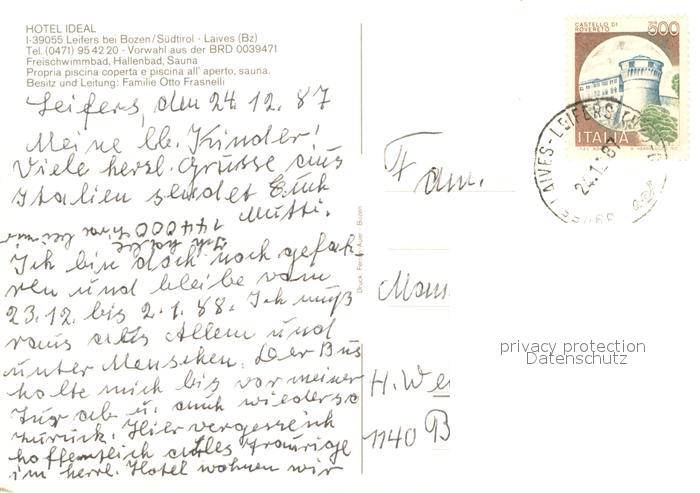 HOTEL IDEAL
I-39055 Leifers bei Bozen/Südtirol - Laives (Bz)
Tel. (0471) 95 42 20 - Vorwahl aus der BRD 0039471
Freischwimmbad, Hallenbad, Sauna
Propria piscina coperta e piscina all'aperto, sauna.
Besitz und Leitung: Familie Otto Frasnelli
Leifers, den 24.12.87
Meine lb. Kinder!
Viele herzl. Grüsse aus
Italien sendet Euch
Mutti.
Ich habe
144000 Lira bei mir
Ich bin doch noch gefah-
ren und bleibe vom
23.12. bis 2.1.88. Ich muß
raus aus Allem und
unter Menschen. Der Bus
holte mich bis vor meiner
Tür ab u. auch wieder so
zurück. Hier vergesse ich
hoffentlich alles Traurige
im herrl. Hotel wohnen wir
Fam.
H. We
1140 B
CASTELLO DI
ROVERETO
500
ITALIA
LAIVES-LEIFERS
24.12.87
privacy protection
Datenschutz